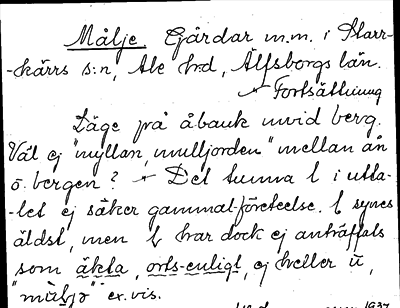 Målje. Gårdar m.m. i Starr-
-kärrs s:n, Ale hrd, Älfsborgs län.
Fortsättning
Läge på åbank invid berg.
Väl ej "myllan, mulljorden" mellan ån
o. bergen? Det tunna l i utta-
-let ej säker gammal företeelse. l synes
äldst, men har dock ej anträffats
som äkta, orts-enligt, ej heller ü,
ex.vis.
1937